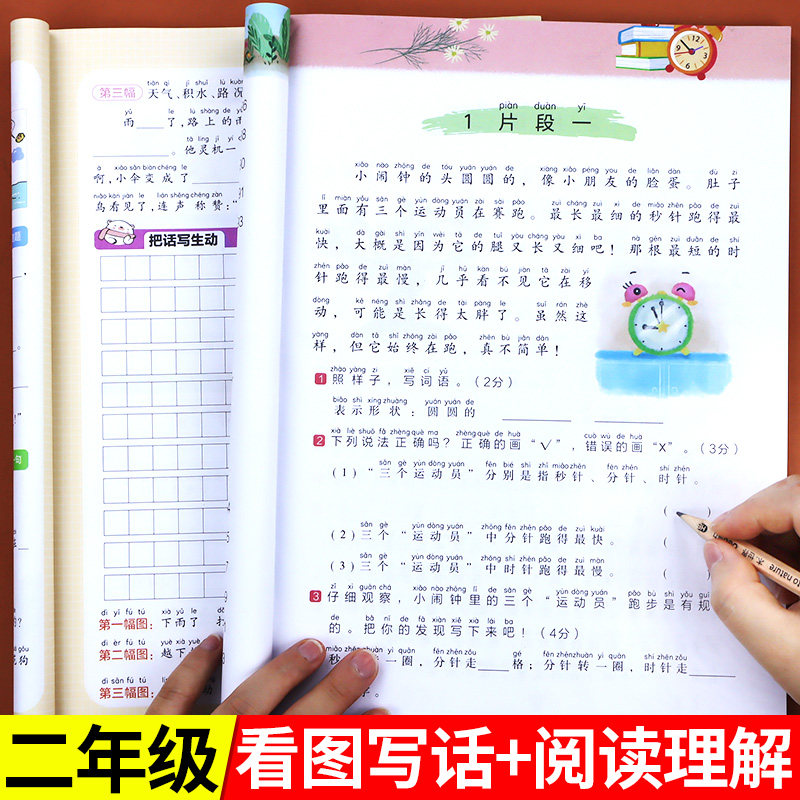 tiān qì jī shuǐ lù kuàng
第三幅 天气、积水、路况
yǔ le lù shàng de yǔ
雨____了,路上的雨
tā líng jī yī
____。他灵机一
ā xiǎo sǎn biàn chéng le
啊,小伞变成了
niǎo kàn jiàn le lián shēng chēng zàn
鸟看见了,连声称赞:“
把话写生动
dì yī fú tú xià yǔ le
第一幅图:下雨了
dì èr fú tú yuè xià yuè
第二幅图:越下越
dì sān fú tú
第三幅图:
piàn duàn yī
1 片段一
xiǎo nào zhōng de tóu yuán yuán de xiàng xiǎo péng yǒu de liǎn dàn dù zi
小闹钟的头圆圆的,像小朋友的脸蛋。肚子
lǐ miàn yǒu sān gè yùn dòng yuán zài sài pǎo zuì cháng zuì xì de miǎo zhēn pǎo de zuì
里面有三个运动员在赛跑。最长最细的秒针跑得最
kuài dà gài shì yīn wèi tā de tuǐ yòu cháng yòu xì ba nà gēn zuì duǎn de shí
快,大概是因为它的腿又长又细吧!那根最短的时
zhēn pǎo de zuì màn jī hū kàn bù jiàn tā zài yí
针跑得最慢,几乎看不见它在移
dòng kě néng shì zhǎng de tài pàng le suī rán zhè
动,可能是长得太胖了。虽然这
yàng dàn tā shǐ zhōng zài pǎo zhēn bù jiǎn dān
样,但它始终在跑,真不简单!
zhào yàng zi xiě cí yǔ
1 照样子,写词语。(2分)
biǎo shì xíng zhuàng yuán yuán de
表示形状:圆圆的 ______ ______
xià liè shuō fǎ zhèng què ma zhèng què de huà cuò wù de huà
2 下列说法正确吗?正确的画“√”,错误的画“X”。(3分)
sān gè yùn dòng yuán fēn bié shì zhǐ miǎo zhēn fēn zhēn shí zhēn
(1)“三个运动员”分别是指秒针、分针、时针。
( )
sān gè yùn dòng yuán zhōng fēn zhēn pǎo de zuì kuài
(2)三个“运动员”中分针跑得最快。 ( )
sān gè yùn dòng yuán zhōng shí zhēn pǎo de zuì màn
(3)三个“运动员”中时针跑得最慢。 ( )
zǐ xì guān chá xiǎo nào zhōng lǐ de sān gè yùn dòng yuán pǎo bù shì yǒu guī
3 仔细观察,小闹钟里的三个“运动员”跑步是有规
de bǎ nǐ de fā xiàn xiě xià lái ba
的。把你的发现写下来吧!(4分)
zhuàn yì quān fēn zhēn zǒu gé fēn zhēn zhuàn yì quān shí zhēn zǒu
秒 一圈,分针走____格;分针转一圈,时针走____
子。
二年级 看图写话+阅读理解